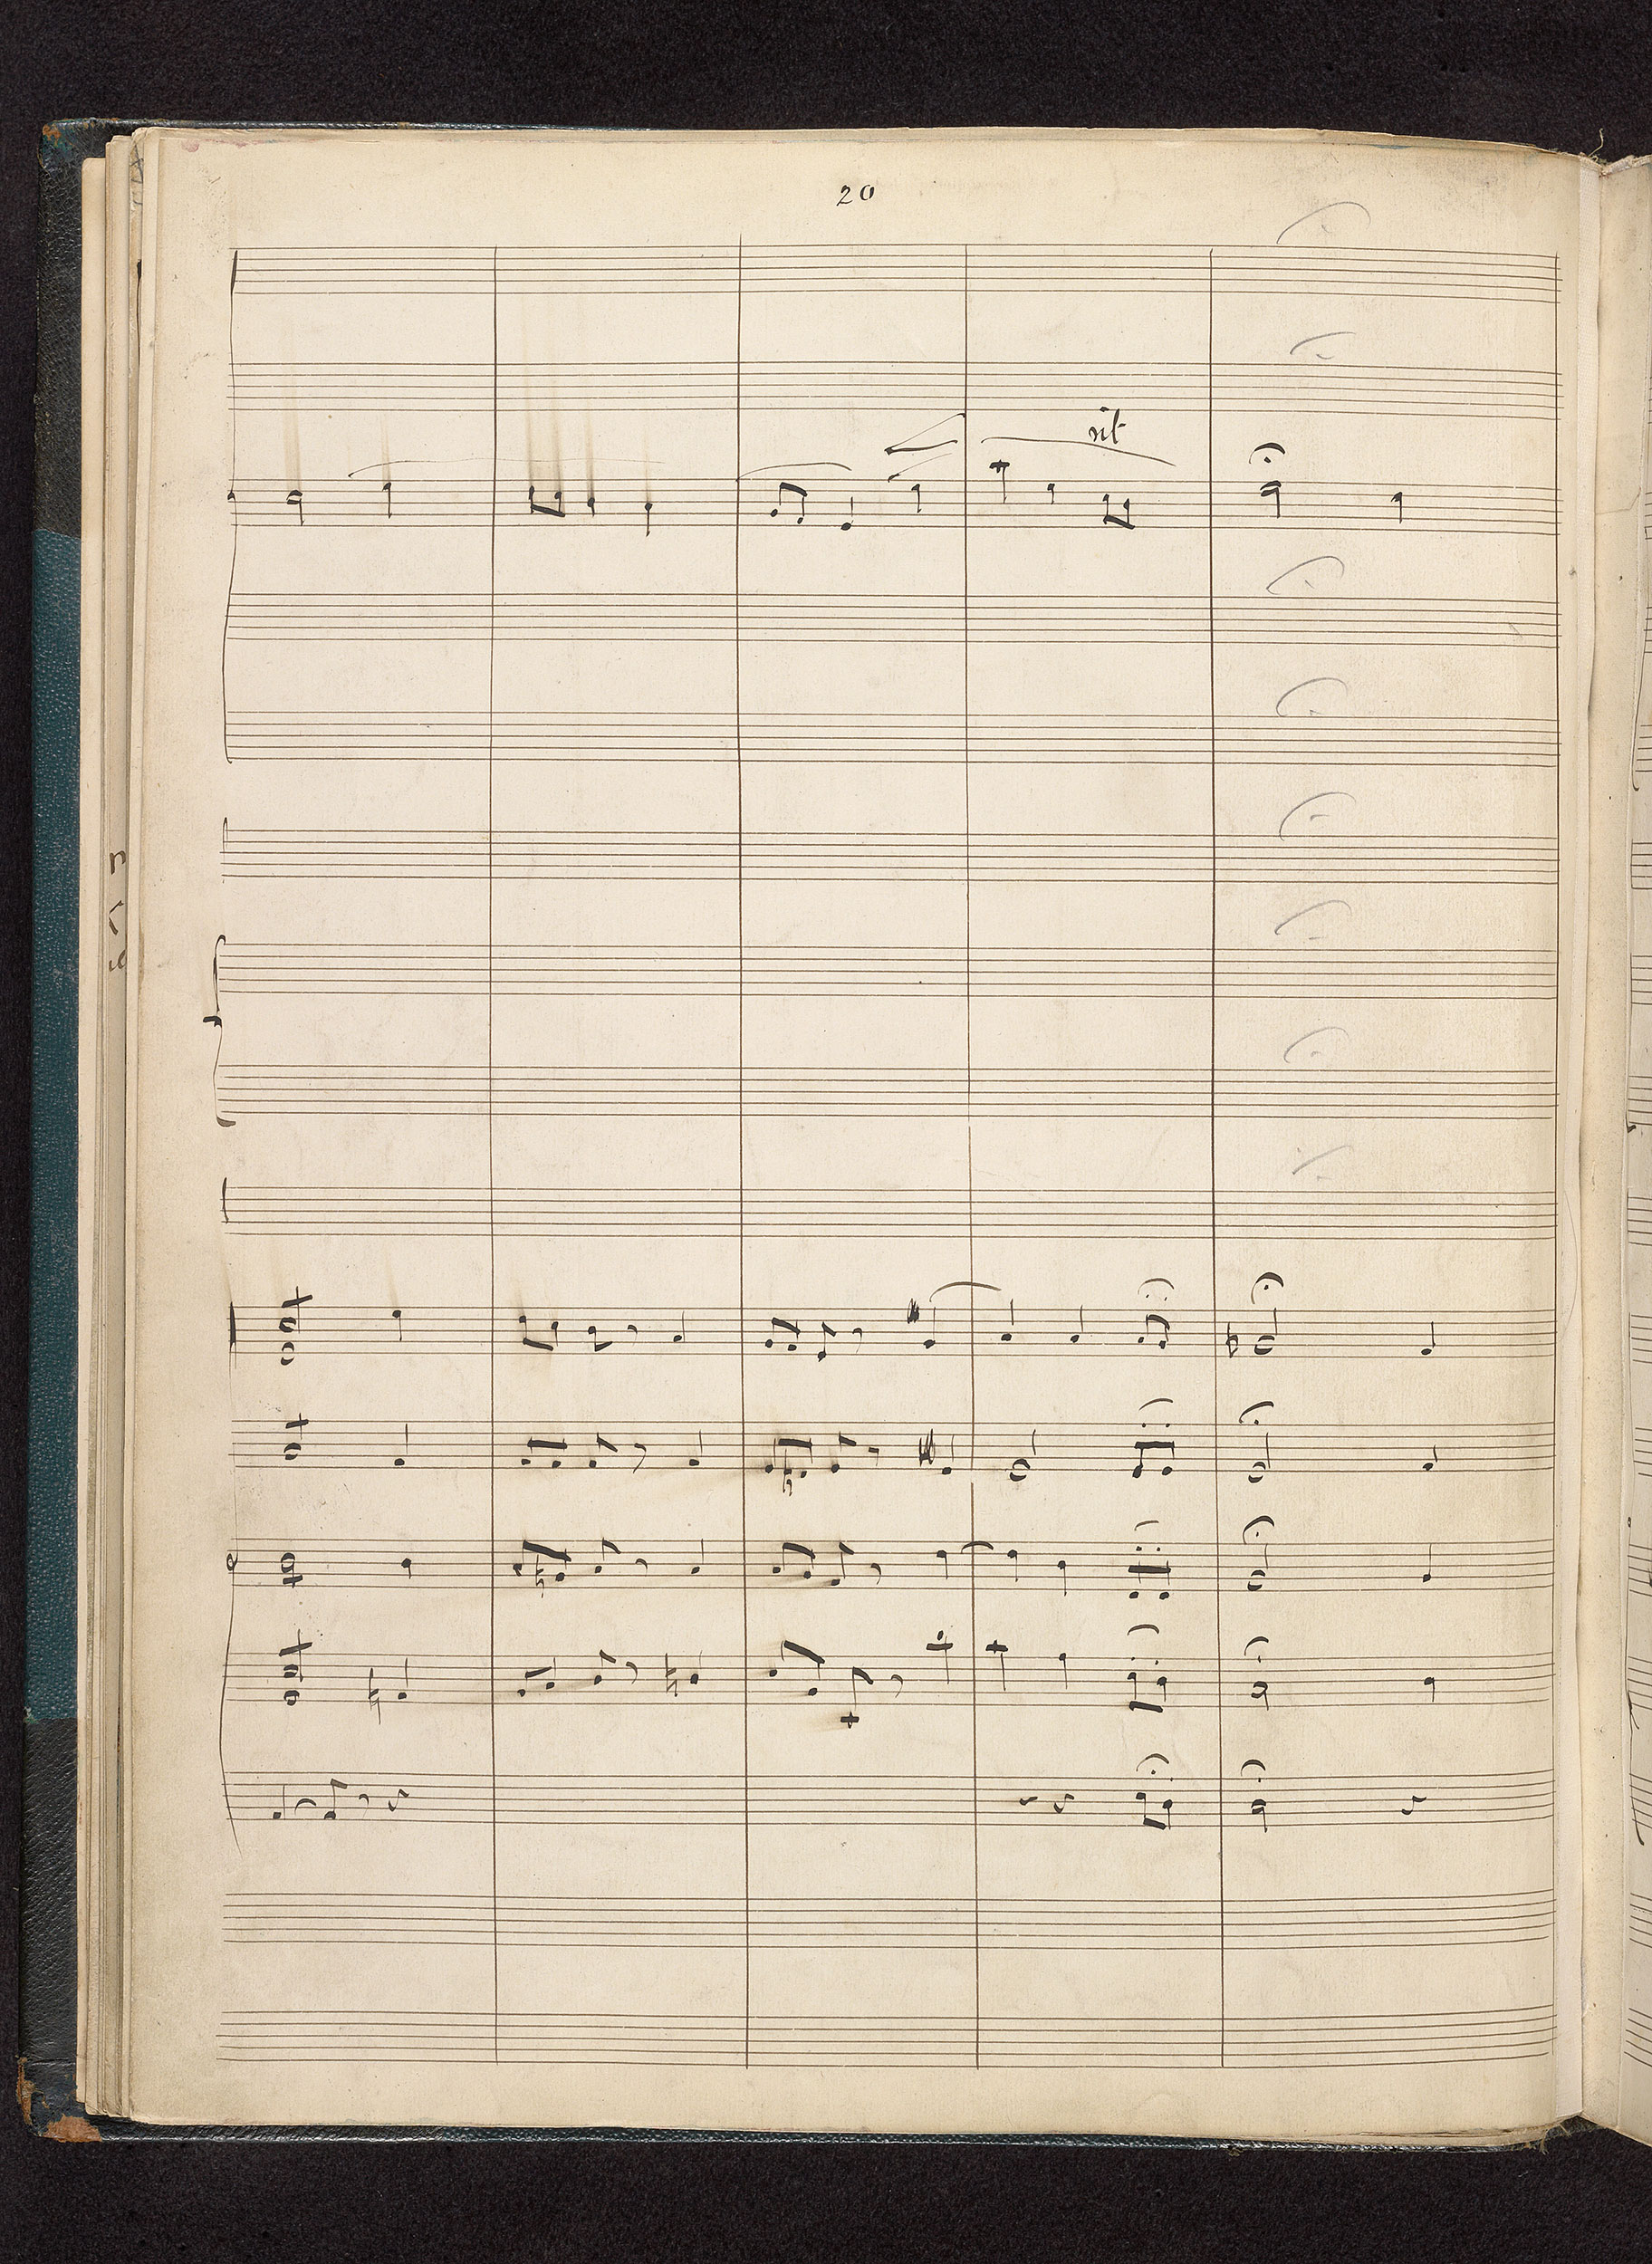 20
rit